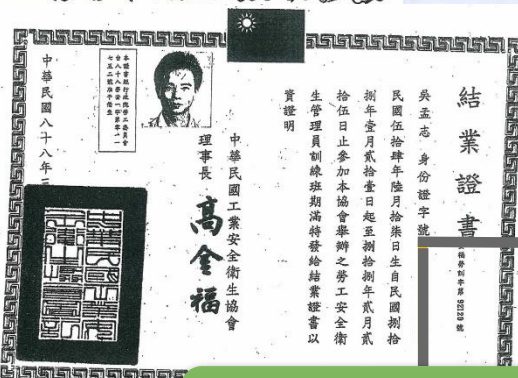 結業證書
福勞訓字第 92229 號
吳孟志 身份證字號
民國伍拾肆年陸月拾柒日生自民國捌拾
捌年壹月貳拾壹日起至捌拾捌年貳月貳
拾伍日止參加本協會舉辦之勞工安全衛
生管理員訓練班期滿特發給結業證書以
資證明
中華民國工業安全衛生協會
理事長 高金福
中華民國八十八年二